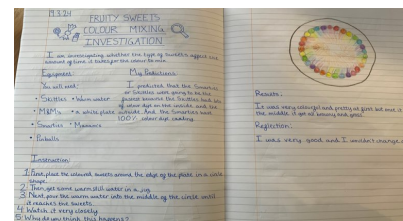 19.3.24
FRUITY SWEETS
COLOUR MIXING
INVESTIGATION
I am investigating whether the type of sweets affect the
amount of time it takes for the colour to mix.
Equipment:
You will need:
• Skittles • Warm water
• M&M's • a white plate
• Smarties • Measure
• Pinballs
My Predictions
I predicted that the Smarties
or Skittles were going to be the
fastest because the Skittles had lots
of colour dye on the inside and the
outside. And the Smarties had
100% colour dye coating.
Instruction:
1. First, place the coloured sweets around the edge of the plate in a circle
shape.
2. Then get some warm still water in a jug.
3. Next, pour the warm water into the middle of the circle until
it reaches the sweets.
4. Watch it very closely.
5. Why do you think this happens?
Results:
It was very colourful and pretty at first but once it
the middle it got all and
Reflection:
I was very good and I wouldn't change